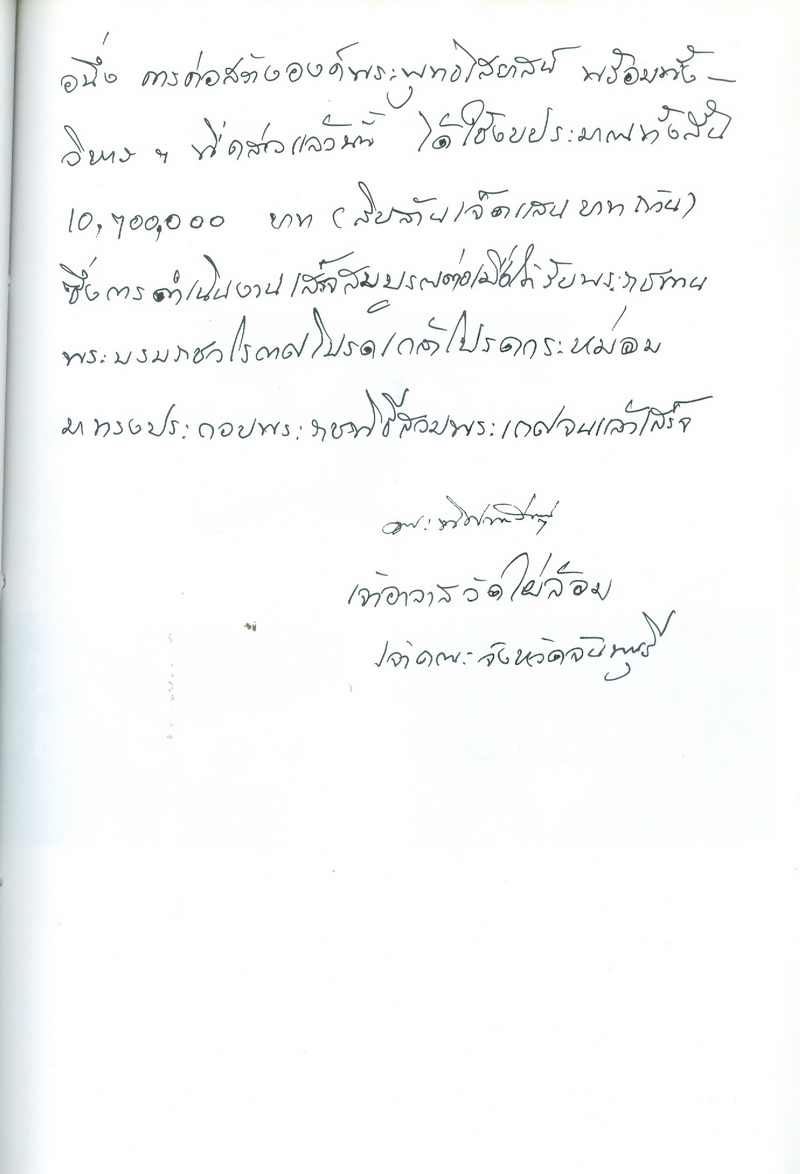 อนึ่ง การก่อสร้างองค์พระพุทธไสยาสน์ พร้อมทั้ง –
วิหาร ฯ ที่ แล้วนี้ ได้ใช้งบประมาณทั้งสิ้น
10,700,000 บาท (สิบล้านเจ็ดแสนบาทถ้วน)
ซึ่งการดำเนินงานเสร็จสมบูรณ์ต่อเมื่อได้รับพระราชทาน
พระบรมราชวโรกาสโปรดเกล้าโปรดกระหม่อม
มาทรงประกอบพระราชพิธีสวมพระเกศจนแล้วเสร็จ
เจ้าอาวาสวัดไผ่ล้อม
เจ้าคณะจังหวัดจันทบุรี